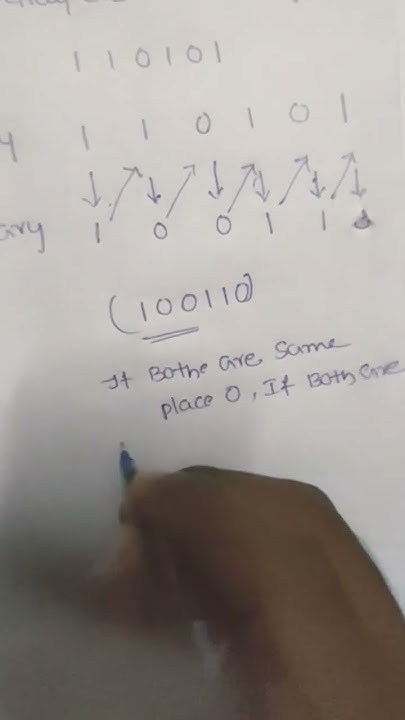 1 1 0 1 0 1
1 1 0 1 0 1
ary 1 0 0 1 1 0
(100110)
If Bothe are Same
place 0, If Both are